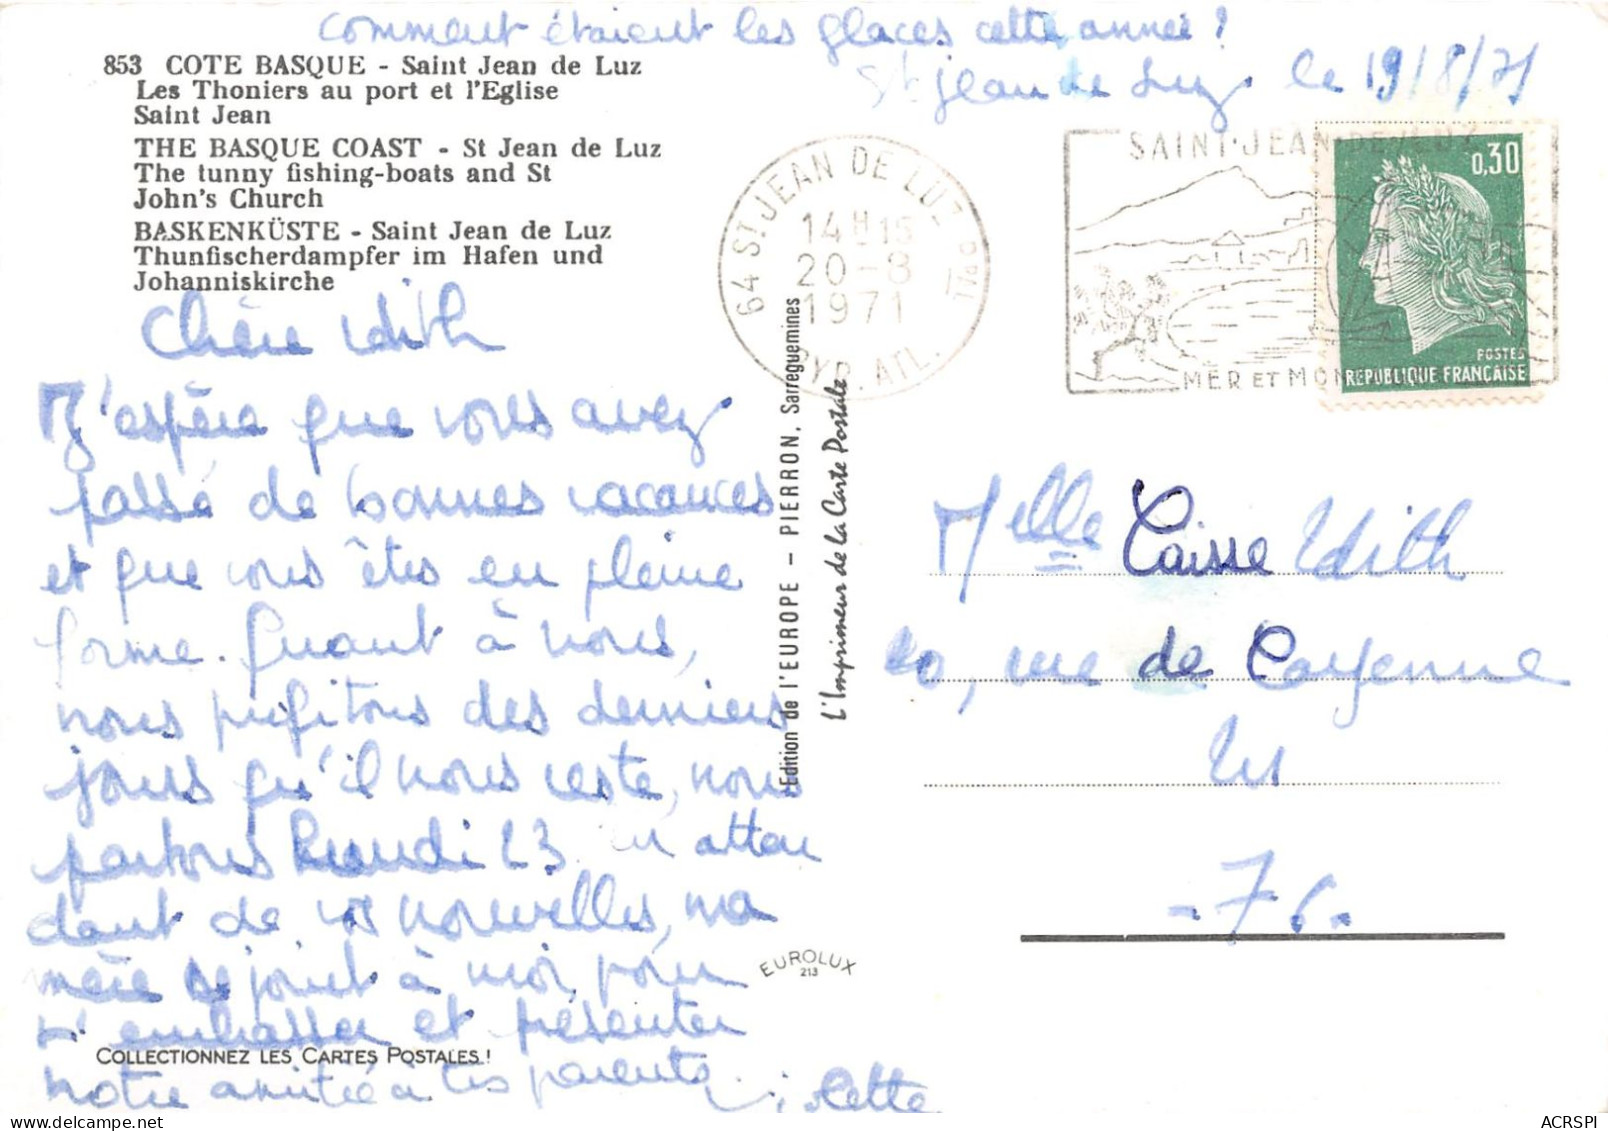 Comment étaient les glaces cette année ?
St Jean de Luz le 19/8/71
853 COTE BASQUE - Saint Jean de Luz
Les Thoniers au port et l'Eglise
Saint Jean
THE BASQUE COAST - St Jean de Luz
The tunny fishing-boats and St
John's Church
BASKENKÜSTE - Saint Jean de Luz
Thunfischerdampfer im Hafen und
Johanniskirche
64 ST JEAN DE LUZ Ppal
14H15
20-8
1971
PYR. ATL.
SAINT-JEAN-DE-LUZ
MER ET MON
0,30
POSTES
REPUBLIQUE FRANÇAISE
Chère Edith
J'espère que vous avez
passé de bonnes vacances
et que vous êtes en pleine
forme. Quant à nous,
nous profitons des derniers
jours qu'il nous reste, nous
partons Lundi 23. En atten
dant de vos nouvelles, ma
mère se joint à moi, pour
t'embrasser et présenter
notre amitié à tes parents.
COLLECTIONNEZ LES CARTES POSTALES !
Edition de l'EUROPE - PIERRON, Sarreguemines
L'Imprimeur de la Carte Postale
EUROLUX
213
Melle Caisse Edith
20, rue de Cayenne
Eu
-76-
ACRSPI